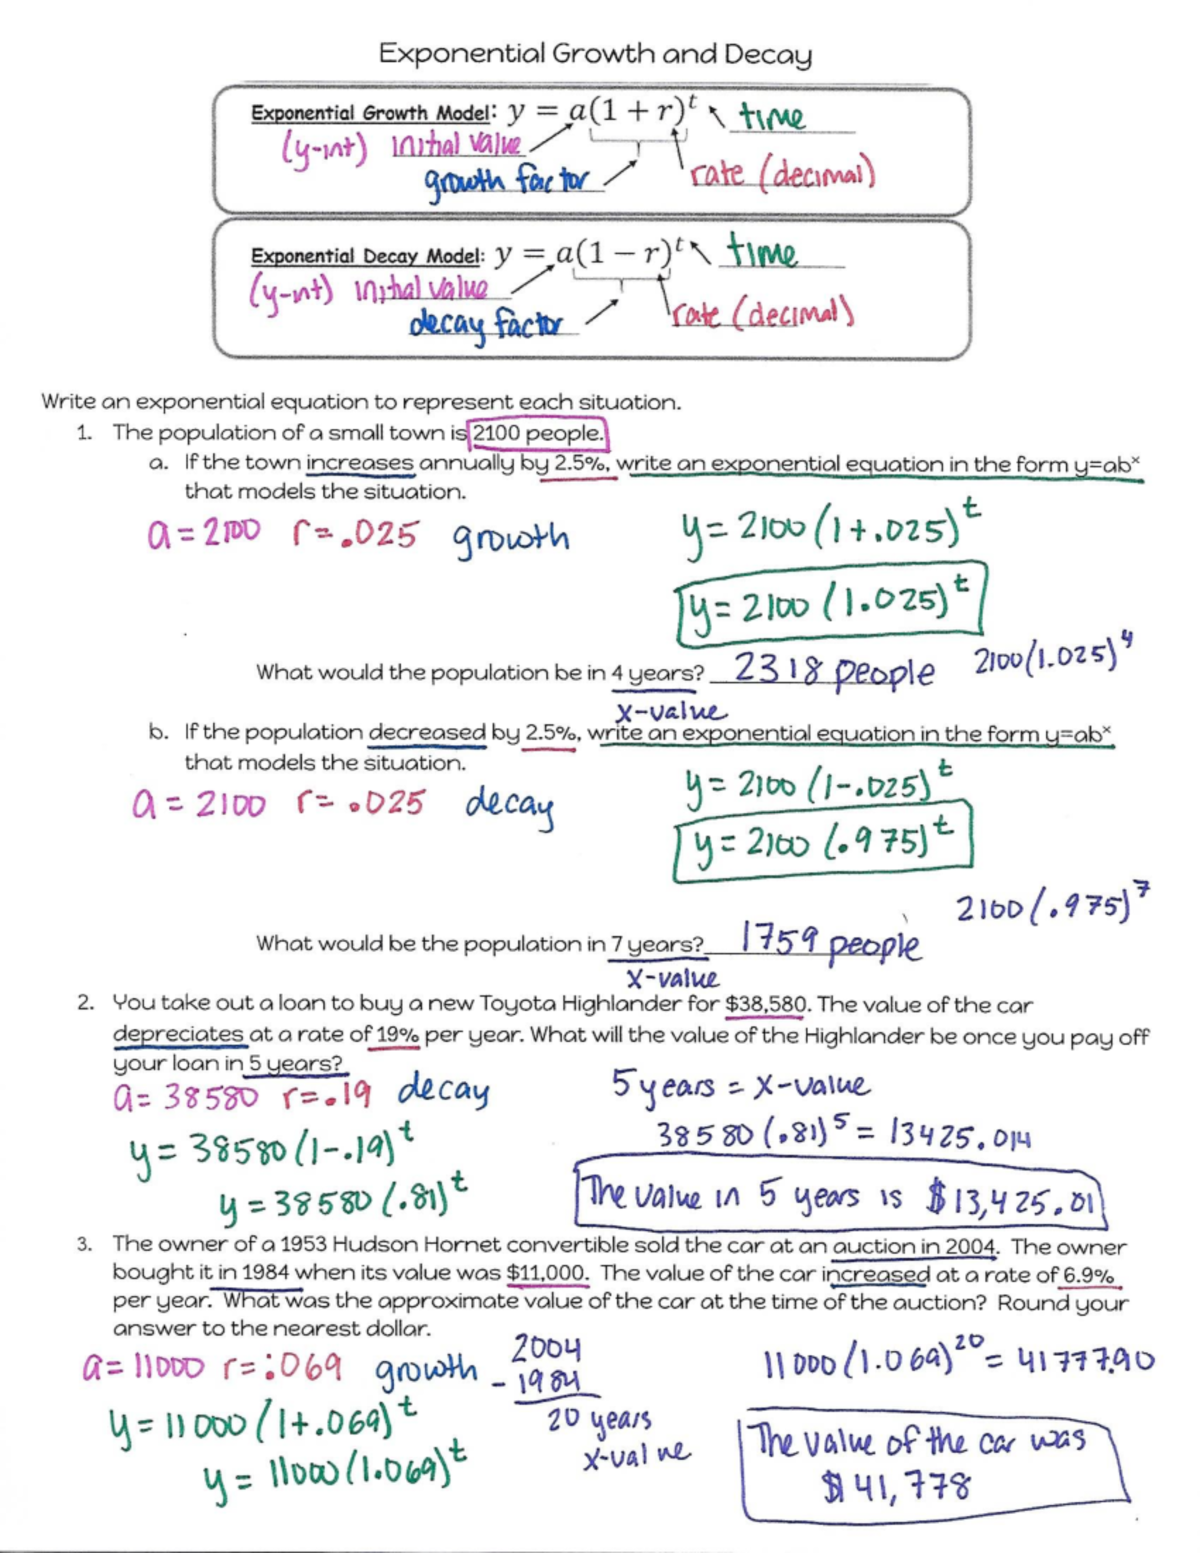 Exponential Growth and Decay
Exponential Growth Model: y = a(1 + r)^t time
(y-int) initial value
growth factor rate (decimal)
Exponential Decay Model: y = a(1 − r)^t time
(y-int) initial value
decay factor rate (decimal)
Write an exponential equation to represent each situation.
1. The population of a small town is 2100 people.
a. If the town increases annually by 2.5%, write an exponential equation in the form y=ab^x
that models the situation.
a = 2100 r = .025 growth y = 2100 (1+.025)^t
y = 2100 (1.025)^t
What would the population be in 4 years? 2318 people 2100(1.025)^4
x-value
b. If the population decreased by 2.5%, write an exponential equation in the form y=ab^x
that models the situation.
a = 2100 r = .025 decay y = 2100 (1-.025)^t
y = 2100 (.975)^t
2100 (.975)^7
What would be the population in 7 years? 1759 people
x-value
2. You take out a loan to buy a new Toyota Highlander for $38,580. The value of the car
depreciates at a rate of 19% per year. What will the value of the Highlander be once you pay off
your loan in 5 years?
a = 38580 r = .19 decay 5 years = x-value
y = 38580 (1-.19)^t 38580 (.81)^5 = 13425.014
y = 38580 (.81)^t The value in 5 years is $13,425.01
3. The owner of a 1953 Hudson Hornet convertible sold the car at an auction in 2004. The owner
bought it in 1984 when its value was $11,000. The value of the car increased at a rate of 6.9%
per year. What was the approximate value of the car at the time of the auction? Round your
answer to the nearest dollar.
a = 11000 r = .069 growth 2004 11000 (1.069)^20 = 41777.90
- 1984
y = 11000 (1+.069)^t 20 years The value of the car was
y = 11000 (1.069)^t x-value $41,778